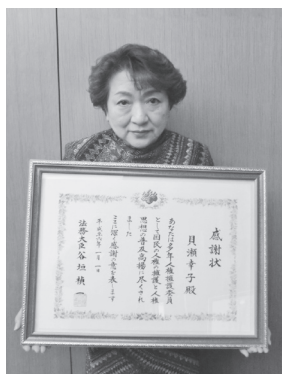 感謝状
貝瀬幸子殿
あなたは多年人権擁護委員
として国民の人権の擁護と人権
思想の普及高揚に尽くされ
ました
ここに深く感謝の意を表します
法務大臣谷垣禎一